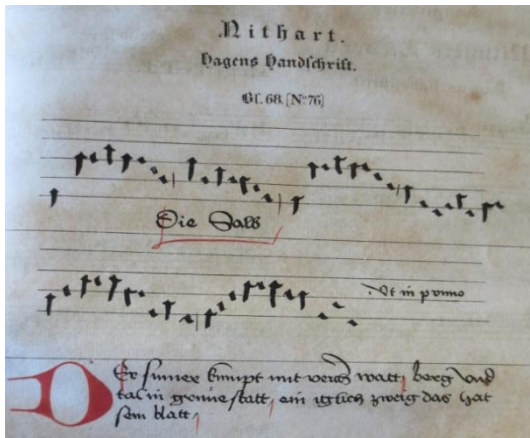 Nithart.
Hagens Handschrift.
Bl. 68. [No. 76]
Die Salb
Vt in primo
Der sumer kumpt mit watt berg vnd
tal in statt, ein iglich zweig das hat
sein blatt,